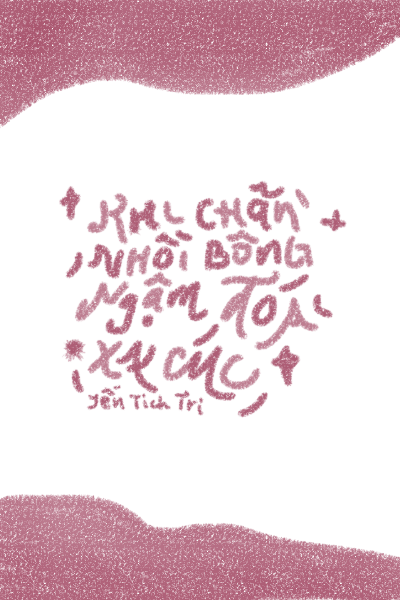 KHI CHĂN
NHỒI BÔNG
NGẬM TÓC
XÚC
Yến Tich Tri